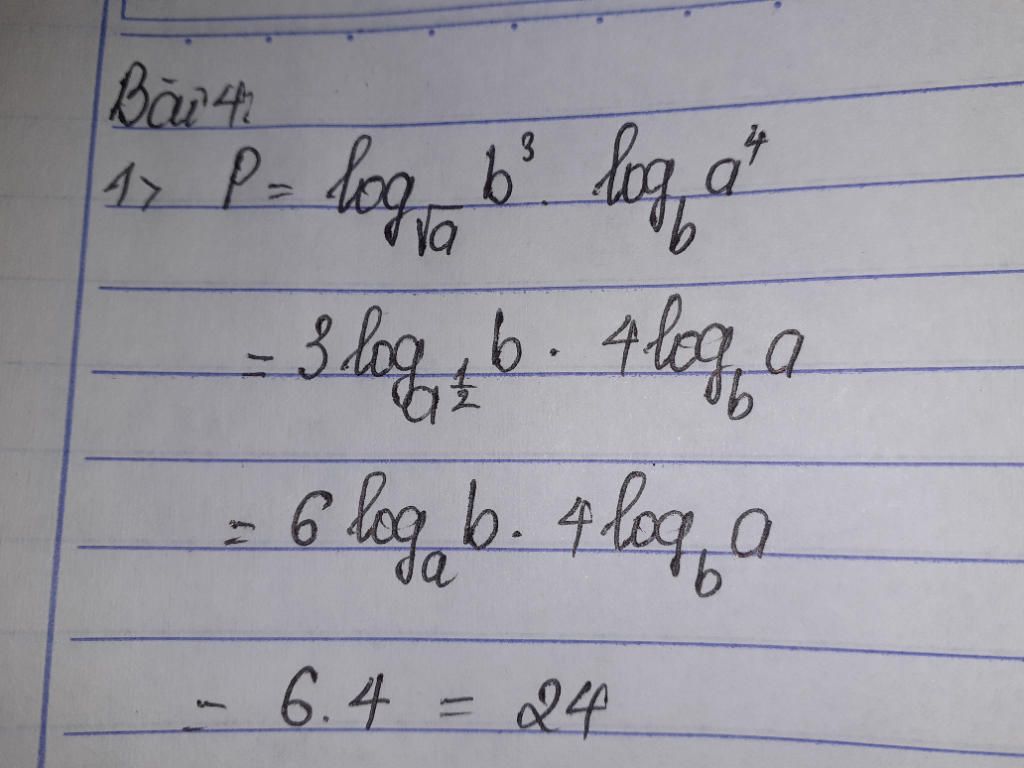 Bài 4:
1> P = log_{√a} b³ . log_b a⁴
= 3 log_{a^{1/2}} b . 4 log_b a
= 6 log_a b . 4 log_b a
= 6 . 4 = 24